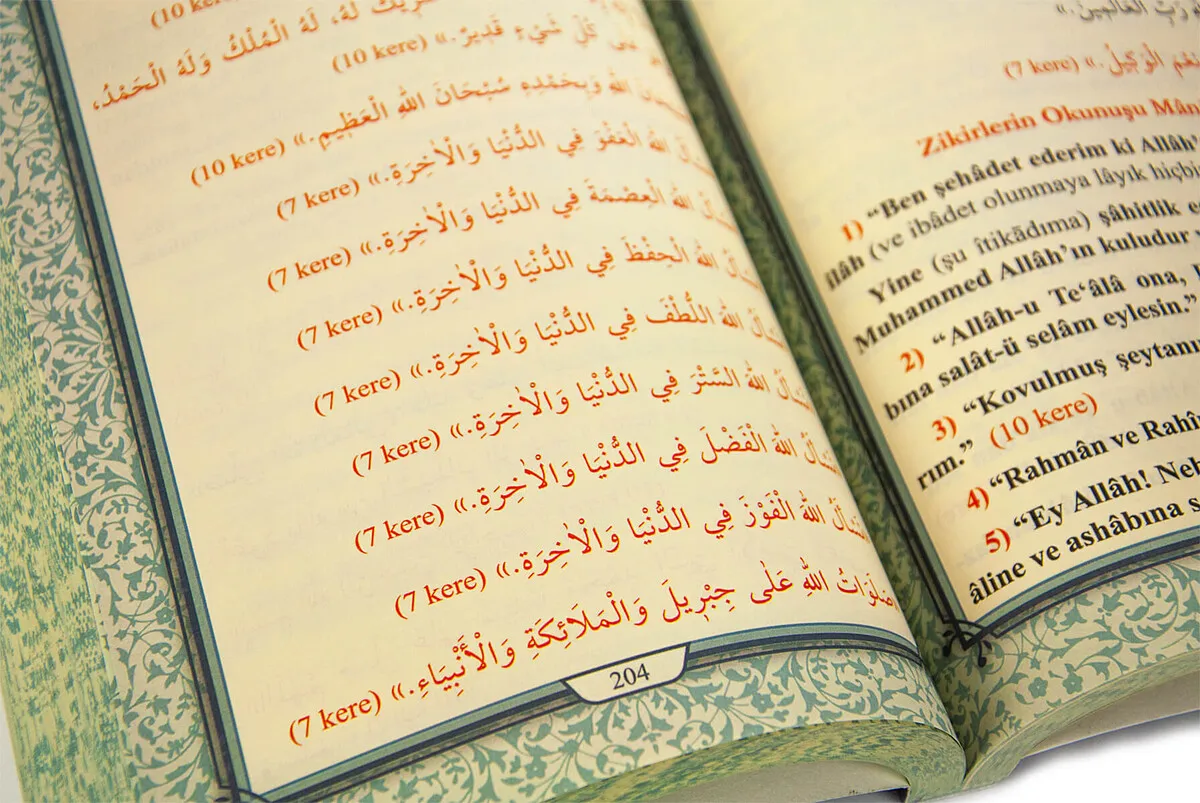 (10 kere)
لَهُ، لَهُ الْمُلْكُ وَلَهُ الْحَمْدُ،
كُلِّ شَيْءٍ قَدِيرٌ.» (10 kere)
اللهِ وَبِحَمْدِهِ سُبْحَانَ اللهِ الْعَظِيمِ.» (10 kere)
اللهَ الْعَفْوَ فِي الدُّنْيَا وَالْاٰخِرَةِ.» (7 kere)
اللهَ الْعِصْمَةَ فِي الدُّنْيَا وَالْاٰخِرَةِ.» (7 kere)
اللهَ الْحِفْظَ فِي الدُّنْيَا وَالْاٰخِرَةِ.» (7 kere)
اللهَ اللُّطْفَ فِي الدُّنْيَا وَالْاٰخِرَةِ.» (7 kere)
اللهَ السَّتْرَ فِي الدُّنْيَا وَالْاٰخِرَةِ.» (7 kere)
اللهَ الْفَضْلَ فِي الدُّنْيَا وَالْاٰخِرَةِ.» (7 kere)
اللهَ الْفَوْزَ فِي الدُّنْيَا وَالْاٰخِرَةِ.» (7 kere)
صَلَوَاتُ اللهِ عَلٰى جِبْرِيلَ وَالْمَلَائِكَةِ وَالْأَنْبِيَاءِ.» (7 kere)
204
الْعَالَمِينَ.»
الْوَكِيلُ.» (7 kere)
Zikirlerin Okunuşu Mân
1) “Ben şehâdet ederim ki Allâh’
ilâh (ve ibâdet olunmaya lâyık hiçbi
Yine (şu îtikādıma) şâhitlik e
Muhammed Allâh’ın kuludur
2) “Allâh-u Te‘âlâ ona,
bına salât-ü selâm eylesin.”
3) “Kovulmuş şeytanı
rım.” (10 kere)
4) “Rahmân ve Rahî
5) “Ey Allâh! Neb
âline ve ashâbına s